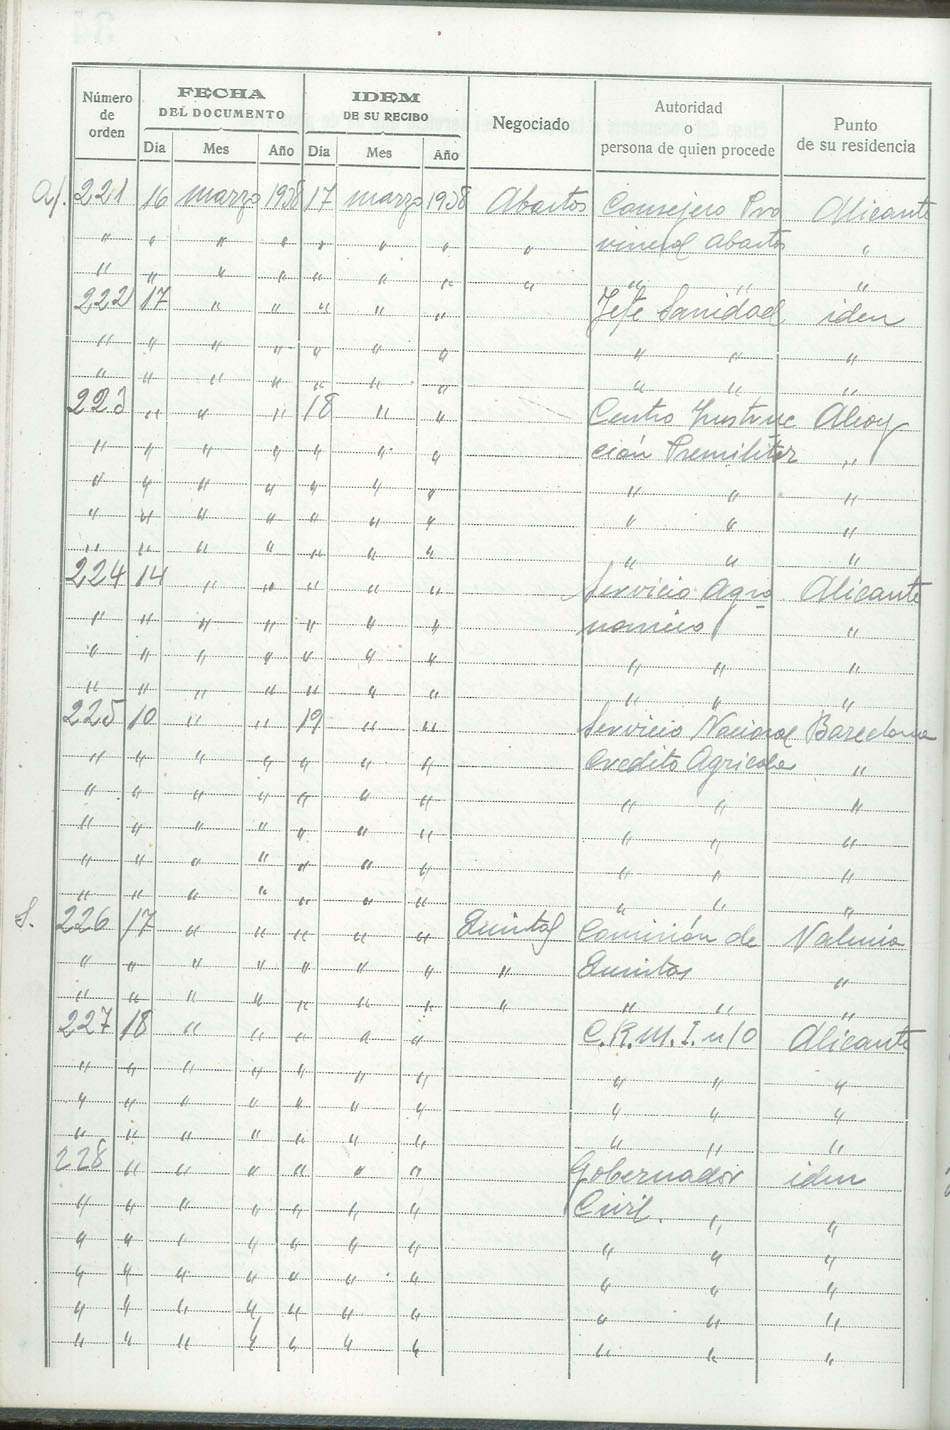 Número de orden | FECHA DEL DOCUMENTO | IDEM DE SU RECIBO | Negociado | Autoridad o persona de quien procede | Punto de su residencia
Día | Mes | Año | Día | Mes | Año
221 | 16 | marzo | 1938 | 17 | marzo | 1938 | Abastos | Consejero Pro | Alicante
" | " | " | " | " | " | " | " | vincial Abastos | "
" | " | " | " | " | " | " | " | " " | "
222 | 17 | " | " | " | " | " | Jefe Sanidad | iden
" | " | " | " | " | " | " | " " | "
" | " | " | " | " | " | " | " " | "
223 | " | " | " | 18 | " | " | Centro Instruc | Alcoy
" | " | " | " | " | " | " | ción Premilitar | "
" | " | " | " | " | " | " | " " | "
" | " | " | " | " | " | " | " " | "
" | " | " | " | " | " | " | " " | "
224 | 14 | " | " | " | " | " | Servicio Agro | Alicante
" | " | " | " | " | " | " | nomico | "
" | " | " | " | " | " | " | " " | "
" | " | " | " | " | " | " | " " | "
225 | 10 | " | " | 19 | " | " | Servicio Nacional | Barcelona
" | " | " | " | " | " | " | Credito Agricola | "
" | " | " | " | " | " | " | " " | "
" | " | " | " | " | " | " | " " | "
" | " | " | " | " | " | " | " " | "
" | " | " | " | " | " | " | " " | "
S. 226 | 17 | " | " | " | " | " | Quintas | Comisión de | Valencia
" | " | " | " | " | " | " | " | Quintas | "
" | " | " | " | " | " | " | " | " " | "
227 | 18 | " | " | " | " | " | C.R.M.I. n 10 | Alicante
" | " | " | " | " | " | " | " " | "
" | " | " | " | " | " | " | " " | "
" | " | " | " | " | " | " | " " | "
228 | " | " | " | " | " | " | Gobernador | iden
" | " | " | " | " | " | " | Civil. " | "
" | " | " | " | " | " | " | " " | "
" | " | " | " | " | " | " | " " | "
" | " | " | " | " | " | " | " " | "
" | " | " | " | " | " | " | " " | "